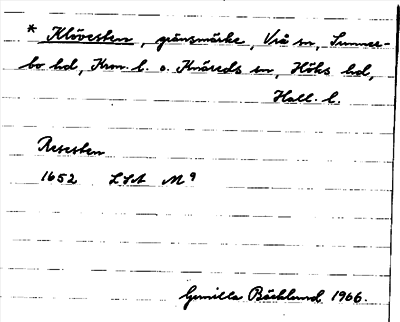 * Klövesten, gränsmärke, Vrå sn, Sunner-
bo hd, Kron. l. o. Knäreds sn, Höks hd,
Hall. l.
Resesten
1652 LSA M⁹
Gunilla Bäcklund 1966.